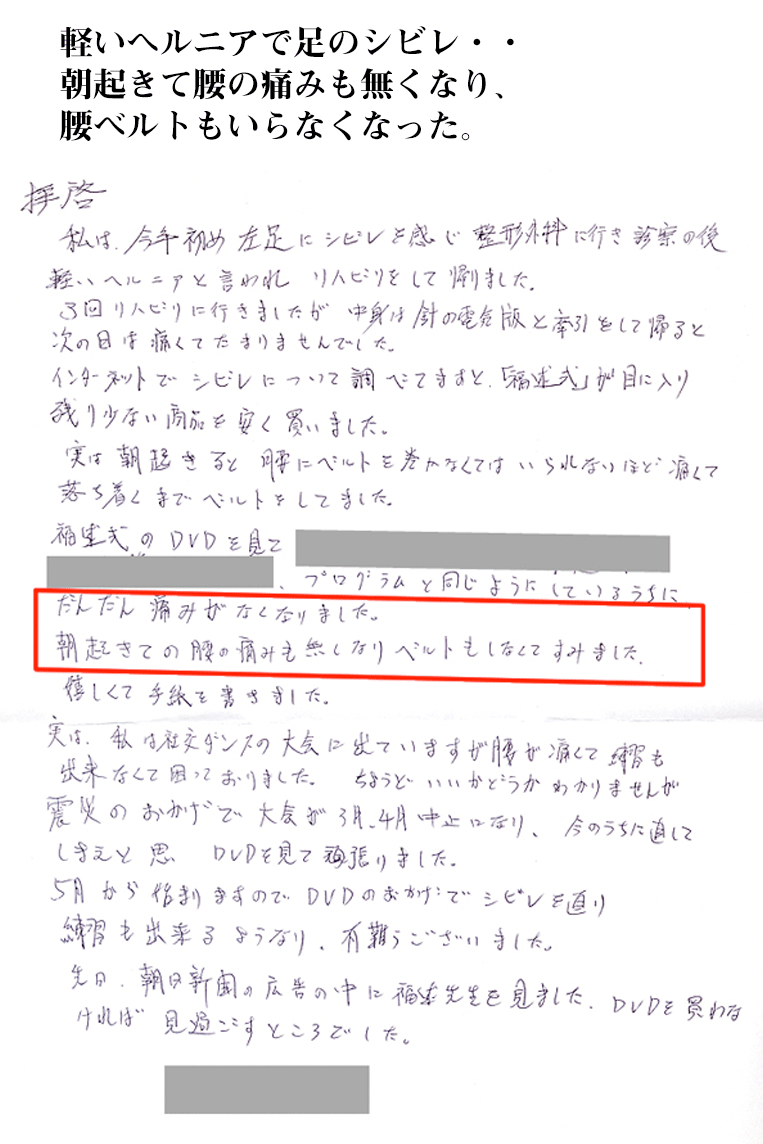 軽いヘルニアで足のシビレ・・
朝起きて腰の痛みも無くなり、
腰ベルトもいらなくなった。
拝啓
私は、今年初め左足にシビレを感じ整形外科に行き診察の後
軽いヘルニアと言われリハビリをして帰りました。
3回リハビリに行きましたが中身は針の電気版と牽引をして帰ると
次の日は痛くてたまりませんでした。
インターネットでシビレについて調べてますと、「福辻式」が目に入り
残り少ない商品を安く買いました。
実は朝起きると腰にベルトを巻かなくてはいられないほど痛くて
落ち着くまでベルトをしてました。
福辻式のDVDを見て
、プログラムと同じようにしているうちに
だんだん痛みがなくなりました。
朝起きての腰の痛みも無しなりベルトもしなくてすみました。
嬉しくて手紙を書きました。
実は、私は社交ダンスの大会に出ていますが腰が痛くて練習も
出来なくて困っておりました。ちょうどいいかどうかわかりませんが
震災のおかげで大会が3月、4月中止になり、今のうちに直して
しまえと思 DVDを見て頑張りました。
5月から始まりますのでDVDのおかげでシビレを直り
練習も出来るようなり、有難うございました。
先日、朝日新聞の広告の中に福辻先生を見ました。DVDを買わな
ければ見過ごすところでした。